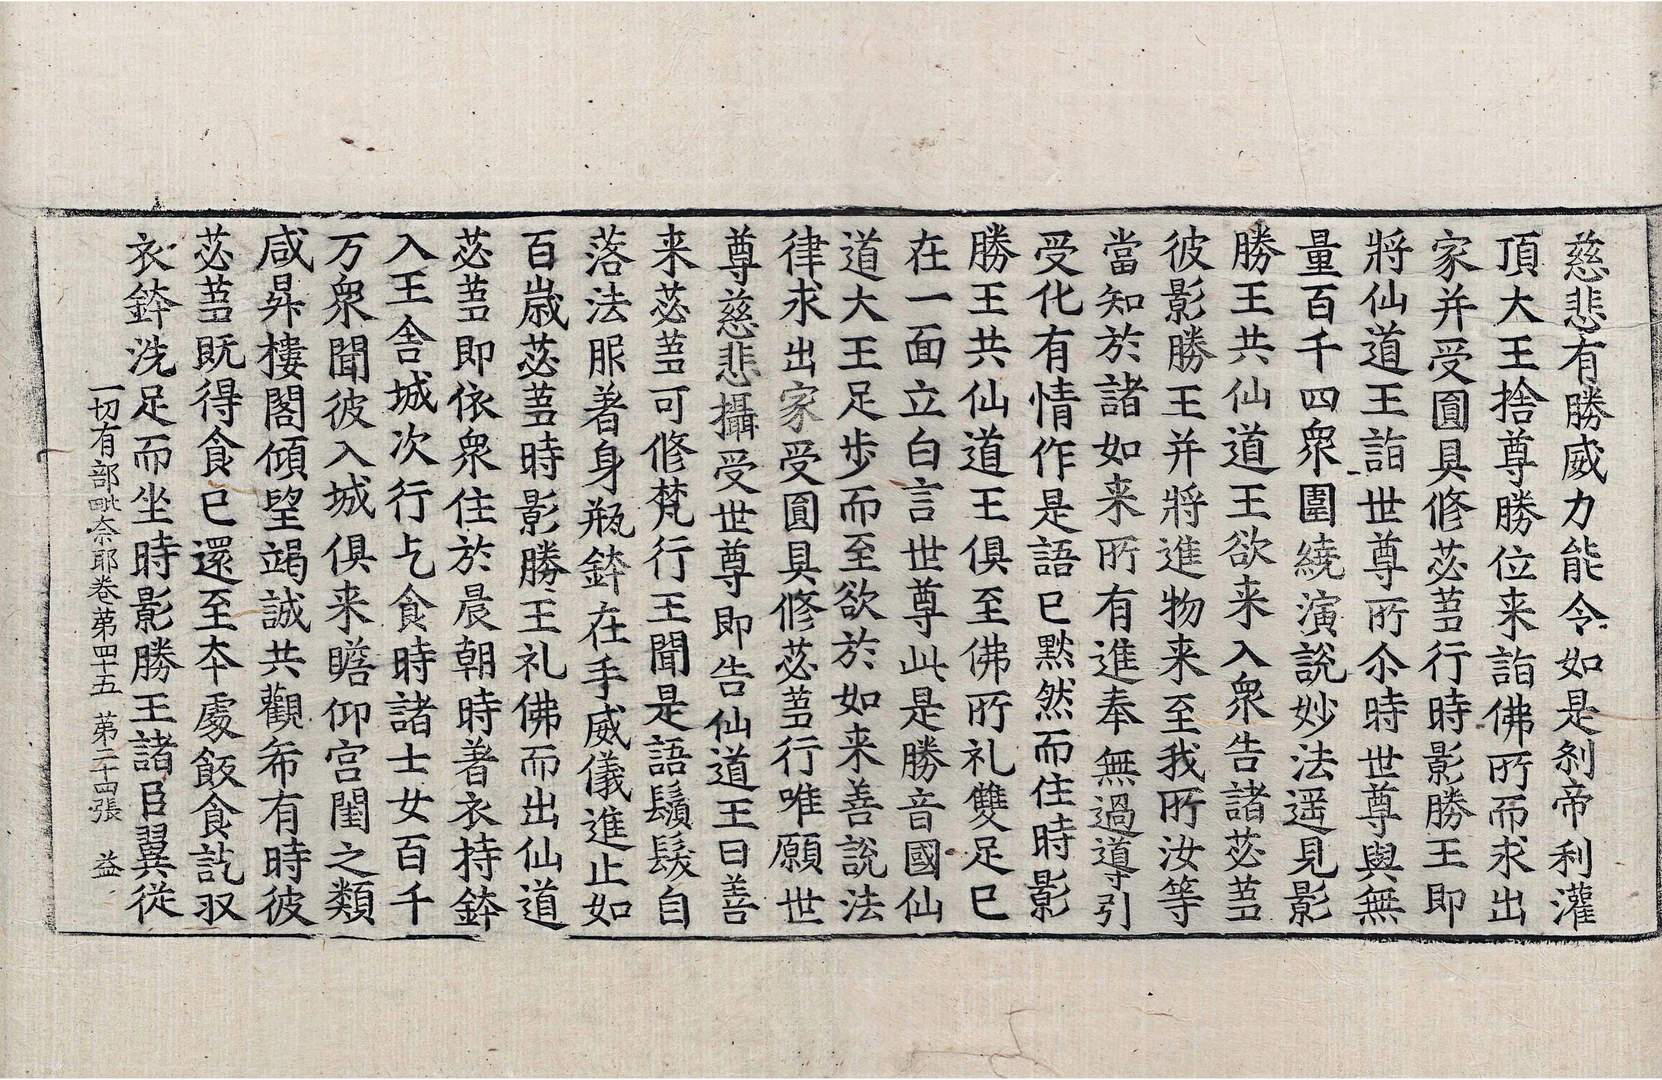 慈悲有勝威力能令如是刹帝利灌
頂大王捨尊勝位来詣佛所而求出
家并受圓具修苾蒭行時影勝王即
將仙道王詣世尊所尒時世尊與無
量百千四衆圍繞演說妙法遥見影
勝王共仙道王欲来入衆告諸苾蒭
彼影勝王并將進物来至我所汝等
當知於諸如来所有進奉無過導引
受化有情作是語已默然而住時影
勝王共仙道王俱至佛所礼雙足已
在一面立白言世尊此是勝音國仙
道大王足步而至欲於如来善說法
律求出家受圓具修苾蒭行唯願世
尊慈悲攝受世尊即告仙道王曰善
来苾蒭可修梵行王聞是語鬚髮自
落法服著身瓶鉢在手威儀進止如
百歲苾蒭時影勝王礼佛而出仙道
苾蒭即依衆住於晨朝時著衣持鉢
入王舍城次行乞食時諸士女百千
万衆聞彼入城俱来瞻仰宫闈之類
咸昇樓閣傾望竭誠共觀希有時彼
苾蒭既得食已還至本處飯食訖収
衣鉢洗足而坐時影勝王諸臣翼從
一切有部毗奈耶卷第四十五 第二十四張 益